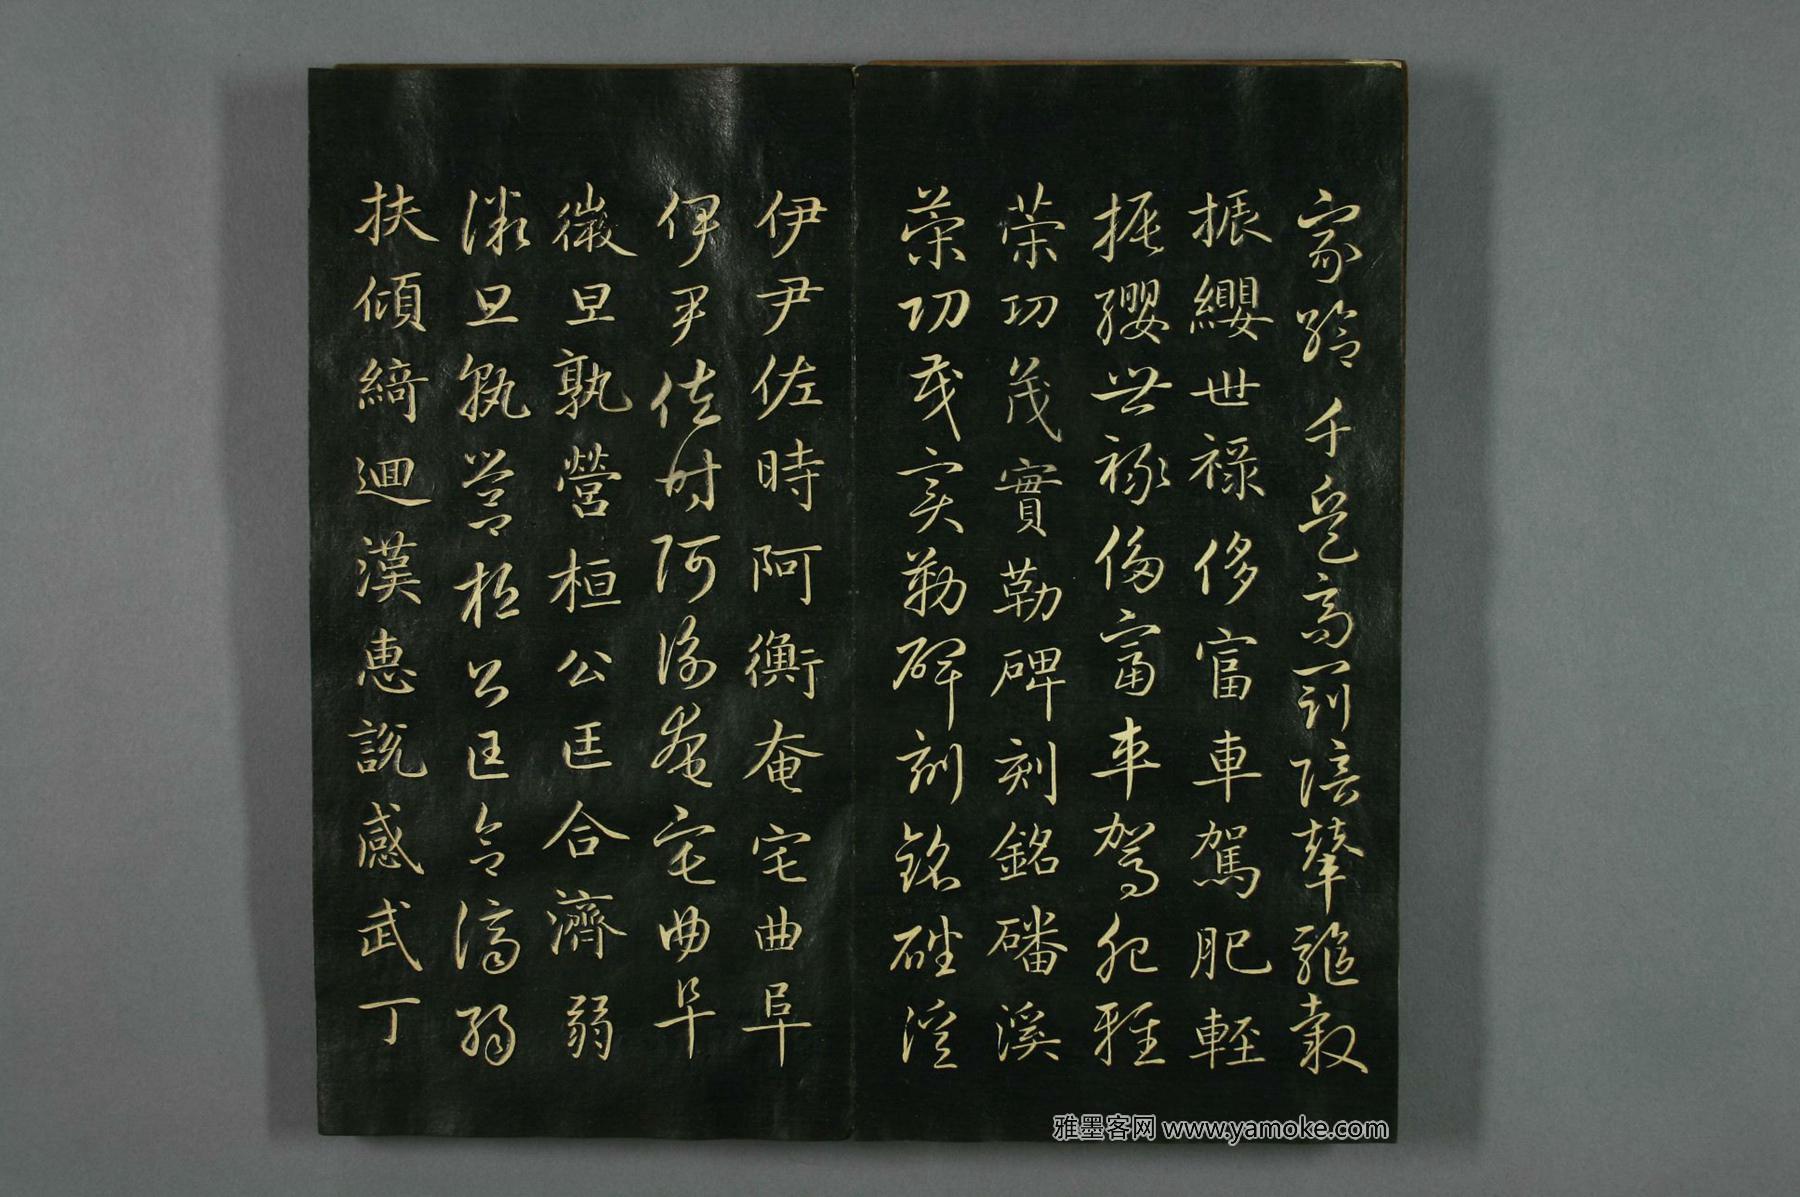 家給千兵高冠陪輦驅轂
振纓世祿侈富車駕肥輕
振纓世祿侈富車駕肥輕
策功茂實勒碑刻銘磻溪
策功茂實勒碑刻銘磻溪
伊尹佐時阿衡奄宅曲阜
伊尹佐時阿衡奄宅曲阜
微旦孰營桓公匡合濟弱
微旦孰營桓公匡合濟弱
扶傾綺迴漢惠說感武丁
雅墨客网 www.yamoke.com